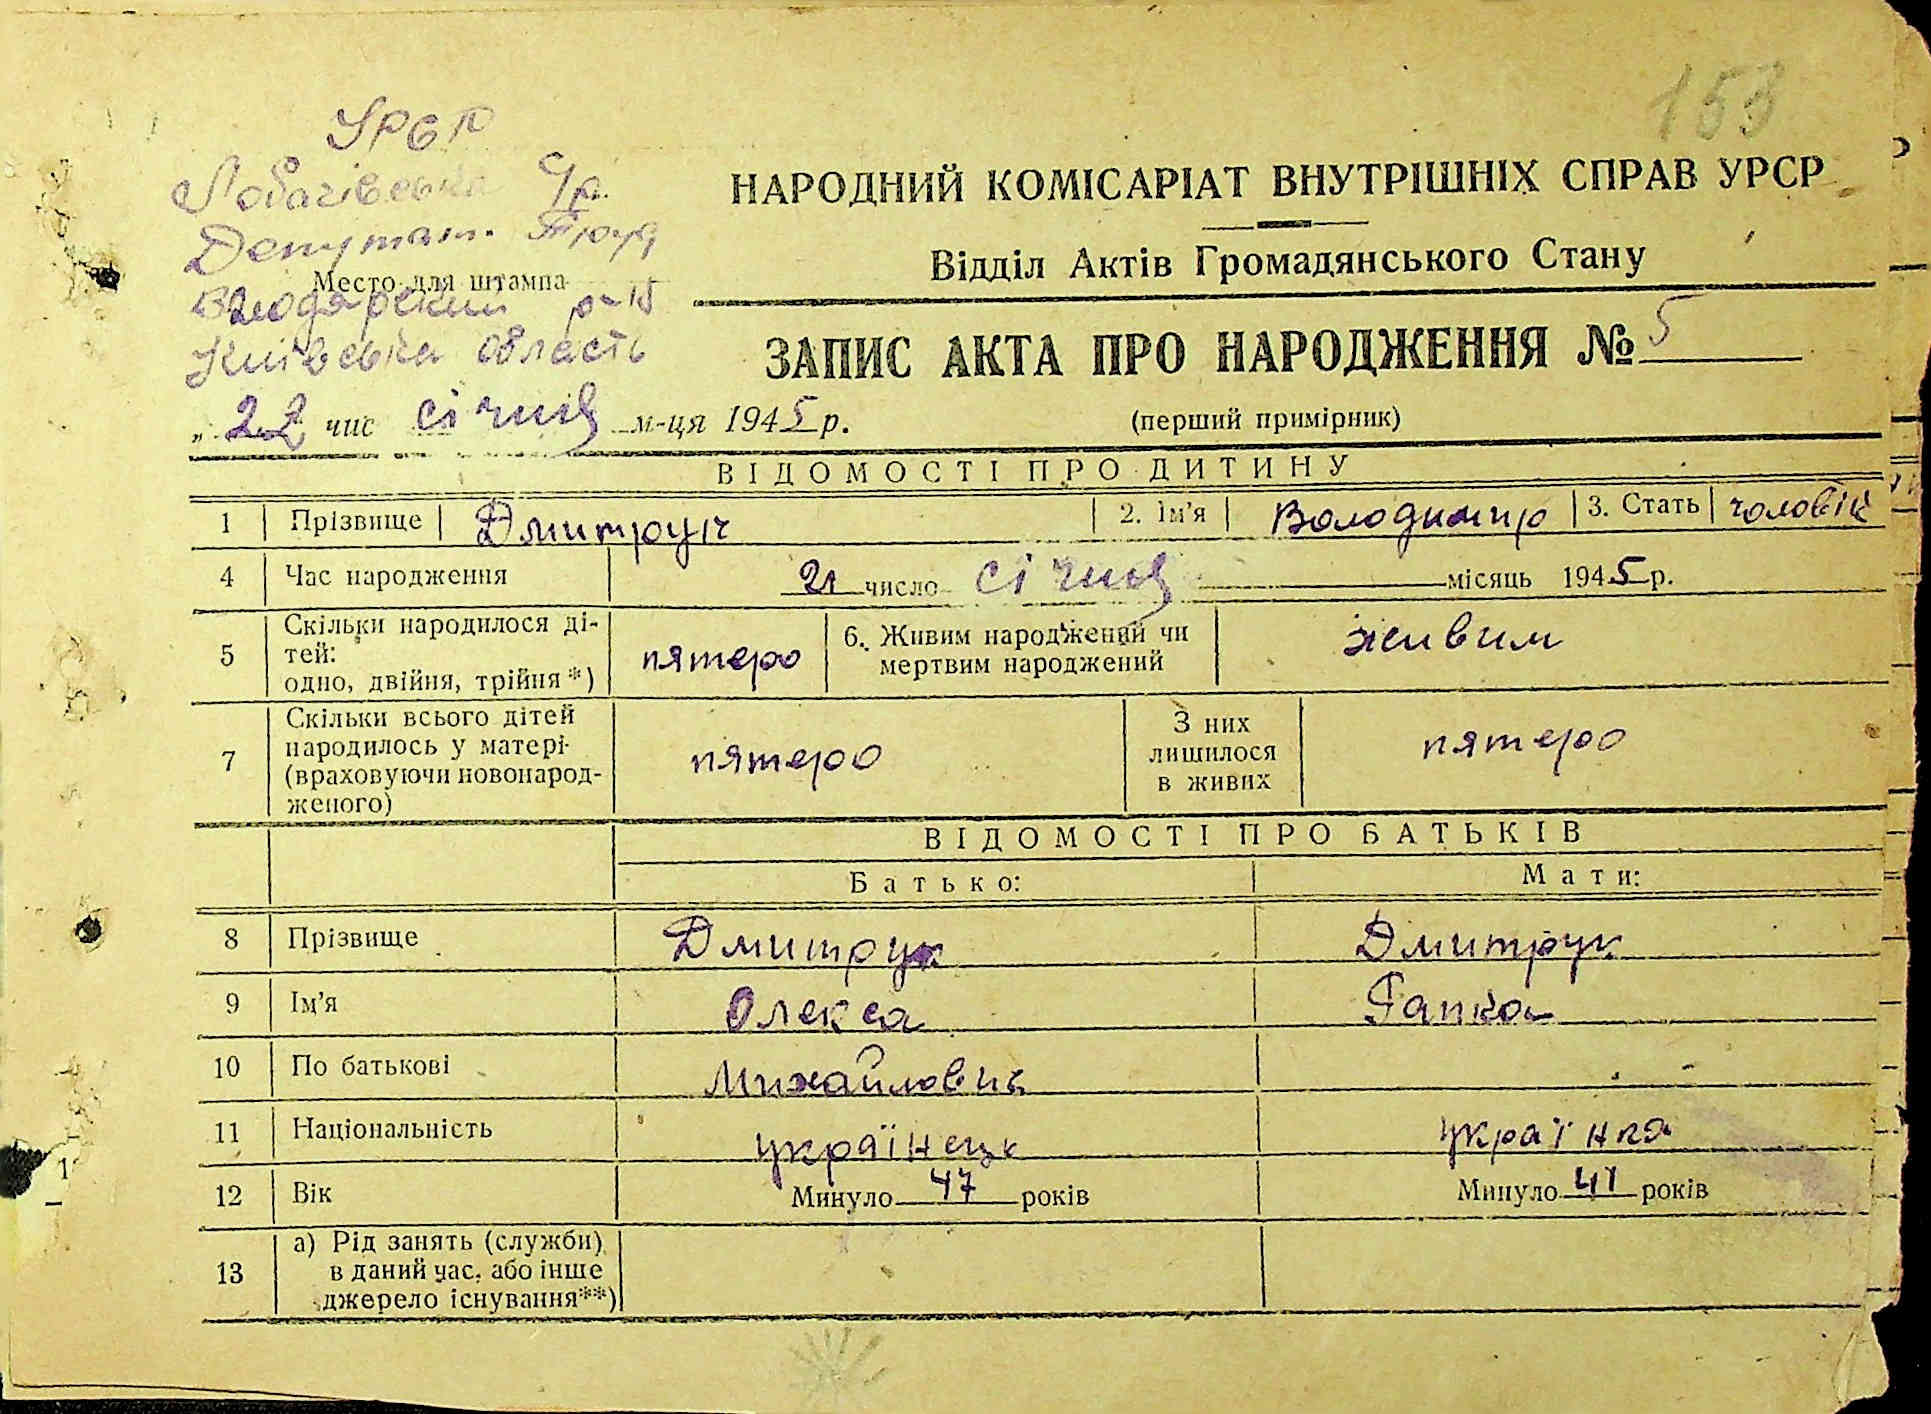 153
УРСР
Лобачівська
Депутат. Труд
Место для штампа
Володарский р-н
Київська область
НАРОДНИЙ КОМІСАРІАТ ВНУТРІШНІХ СПРАВ УРСР
Відділ Актів Громадянського Стану
ЗАПИС АКТА ПРО НАРОДЖЕННЯ № 5
„ 22 чис січня м-ця 1945 р.
(перший примірник)
ВІДОМОСТІ ПРО ДИТИНУ
1 Прізвище Дмитрук 2. Ім'я Володимир 3. Стать чоловік
4 Час народження 21 число січня місяць 1945 р.
5 Скільки народилося ді-
тей:
одно, двійня, трійня*) пятеро 6. Живим народжений чи
мертвим народжений живим
7 Скільки всього дітей
народилось у матері
(враховуючи новонарод-
женого) пятеро З них
лишилося
в живих пятеро
ВІДОМОСТІ ПРО БАТЬКІВ
Батько: Мати:
8 Прізвище Дмитрук Дмитрук
9 Ім'я Олекса Гапка
10 По батькові Михайлович
11 Національність українець українка
12 Вік Минуло 47 років Минуло 41 років
13 а) Рід занять (служби)
в даний час, або інше
джерело існування**)